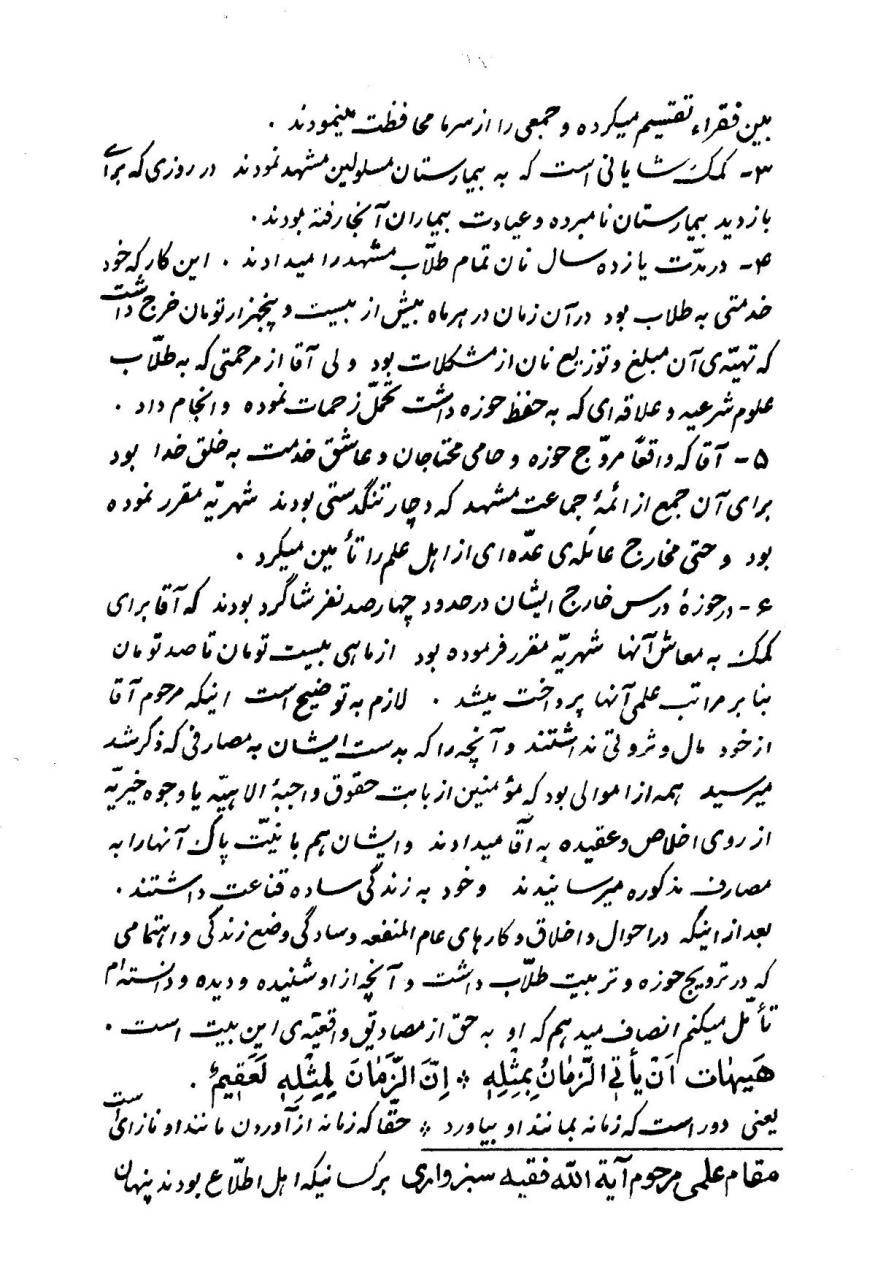 بین فقراء تقسیم میکرده و جمعی را از سرما محافظت مینمودند .
۳- کمک شایانی است که به بیمارستان مسلولین مشهد نمودند در روزی که برای
بازدید بیمارستان نامبرده و عیادت بیماران آنجا رفته بودند .
۴- در مدّت یازده سال نان تمام طلّاب مشهد را میدادند . این کار که خود
خدمتی به طلاب بود در آن زمان در هر ماه بیش از بیست و پنجهزار تومان خرج داشت
که تهیّه‌ی آن مبلغ و توزیع نان از مشکلات بود ولی آقا از مرحمتی که به طلّاب
علوم شرعیه و علاقه‌ای که به حفظ حوزه داشت تحمّل زحمات نموده و انجام داد .
۵- آقا که واقعاً مروّج حوزه و حامی محتاجان و عاشق خدمت به خلق خدا بود
برای آن جمع از ائمهٔ جماعت مشهد که دچار تنگدستی بودند شهریّه مقرر نموده
بود و حتی مخارج عائله‌ی عدّه‌ای از اهل علم را تأمین میکرد .
۶- در حوزهٔ درس خارج ایشان در حدود چهارصد نفر شاگرد بودند که آقا برای
کمک به معاش آنها شهریّه مقرر فرموده بود از ماهی بیست تومان تا صد تومان
بنا بر مراتب علمی آنها پرداخت میشد . لازم به توضیح است اینکه مرحوم آقا
از خود مال و ثروتی نداشتند و آنچه را که بدست ایشان به مصارفی که ذکر شد
میرسید همه از اموالی بود که مؤمنین از بابت حقوق واجبهٔ الاهیّه یا وجوه خیریّه
از روی اخلاص و عقیده به آقا میدادند و ایشان هم با نیّت پاک آنها را به
مصارف مذکوره میرسانیدند و خود به زندگی ساده قناعت داشتند .
بعد از اینکه در احوال و اخلاق و کارهای عام المنفعه و سادگی وضع زندگی و اهتمامی
که در ترویج حوزه و تربیت طلّاب داشت و آنچه از او شنیده و دیده و دانسته‌ام
تأمّل میکنم انصاف میدهم که او به حق از مصادیق واقعیّه‌ی این بیت است .
هَیهٰات اَنْ یأتِیَ الزَّمٰانُ بِمِثْلِهِ * اِنَّ الزَّمٰانَ لِمِثْلِهِ لَعَقِیمٌ .
یعنی دور است که زمانه بمانند او بیاورد * حقّا که زمانه از آوردن مانند او نازای است
مقام علمی مرحوم آیة الله فقیه سبزواری بر کسانیکه اهل اطلّاع بودند پنهان